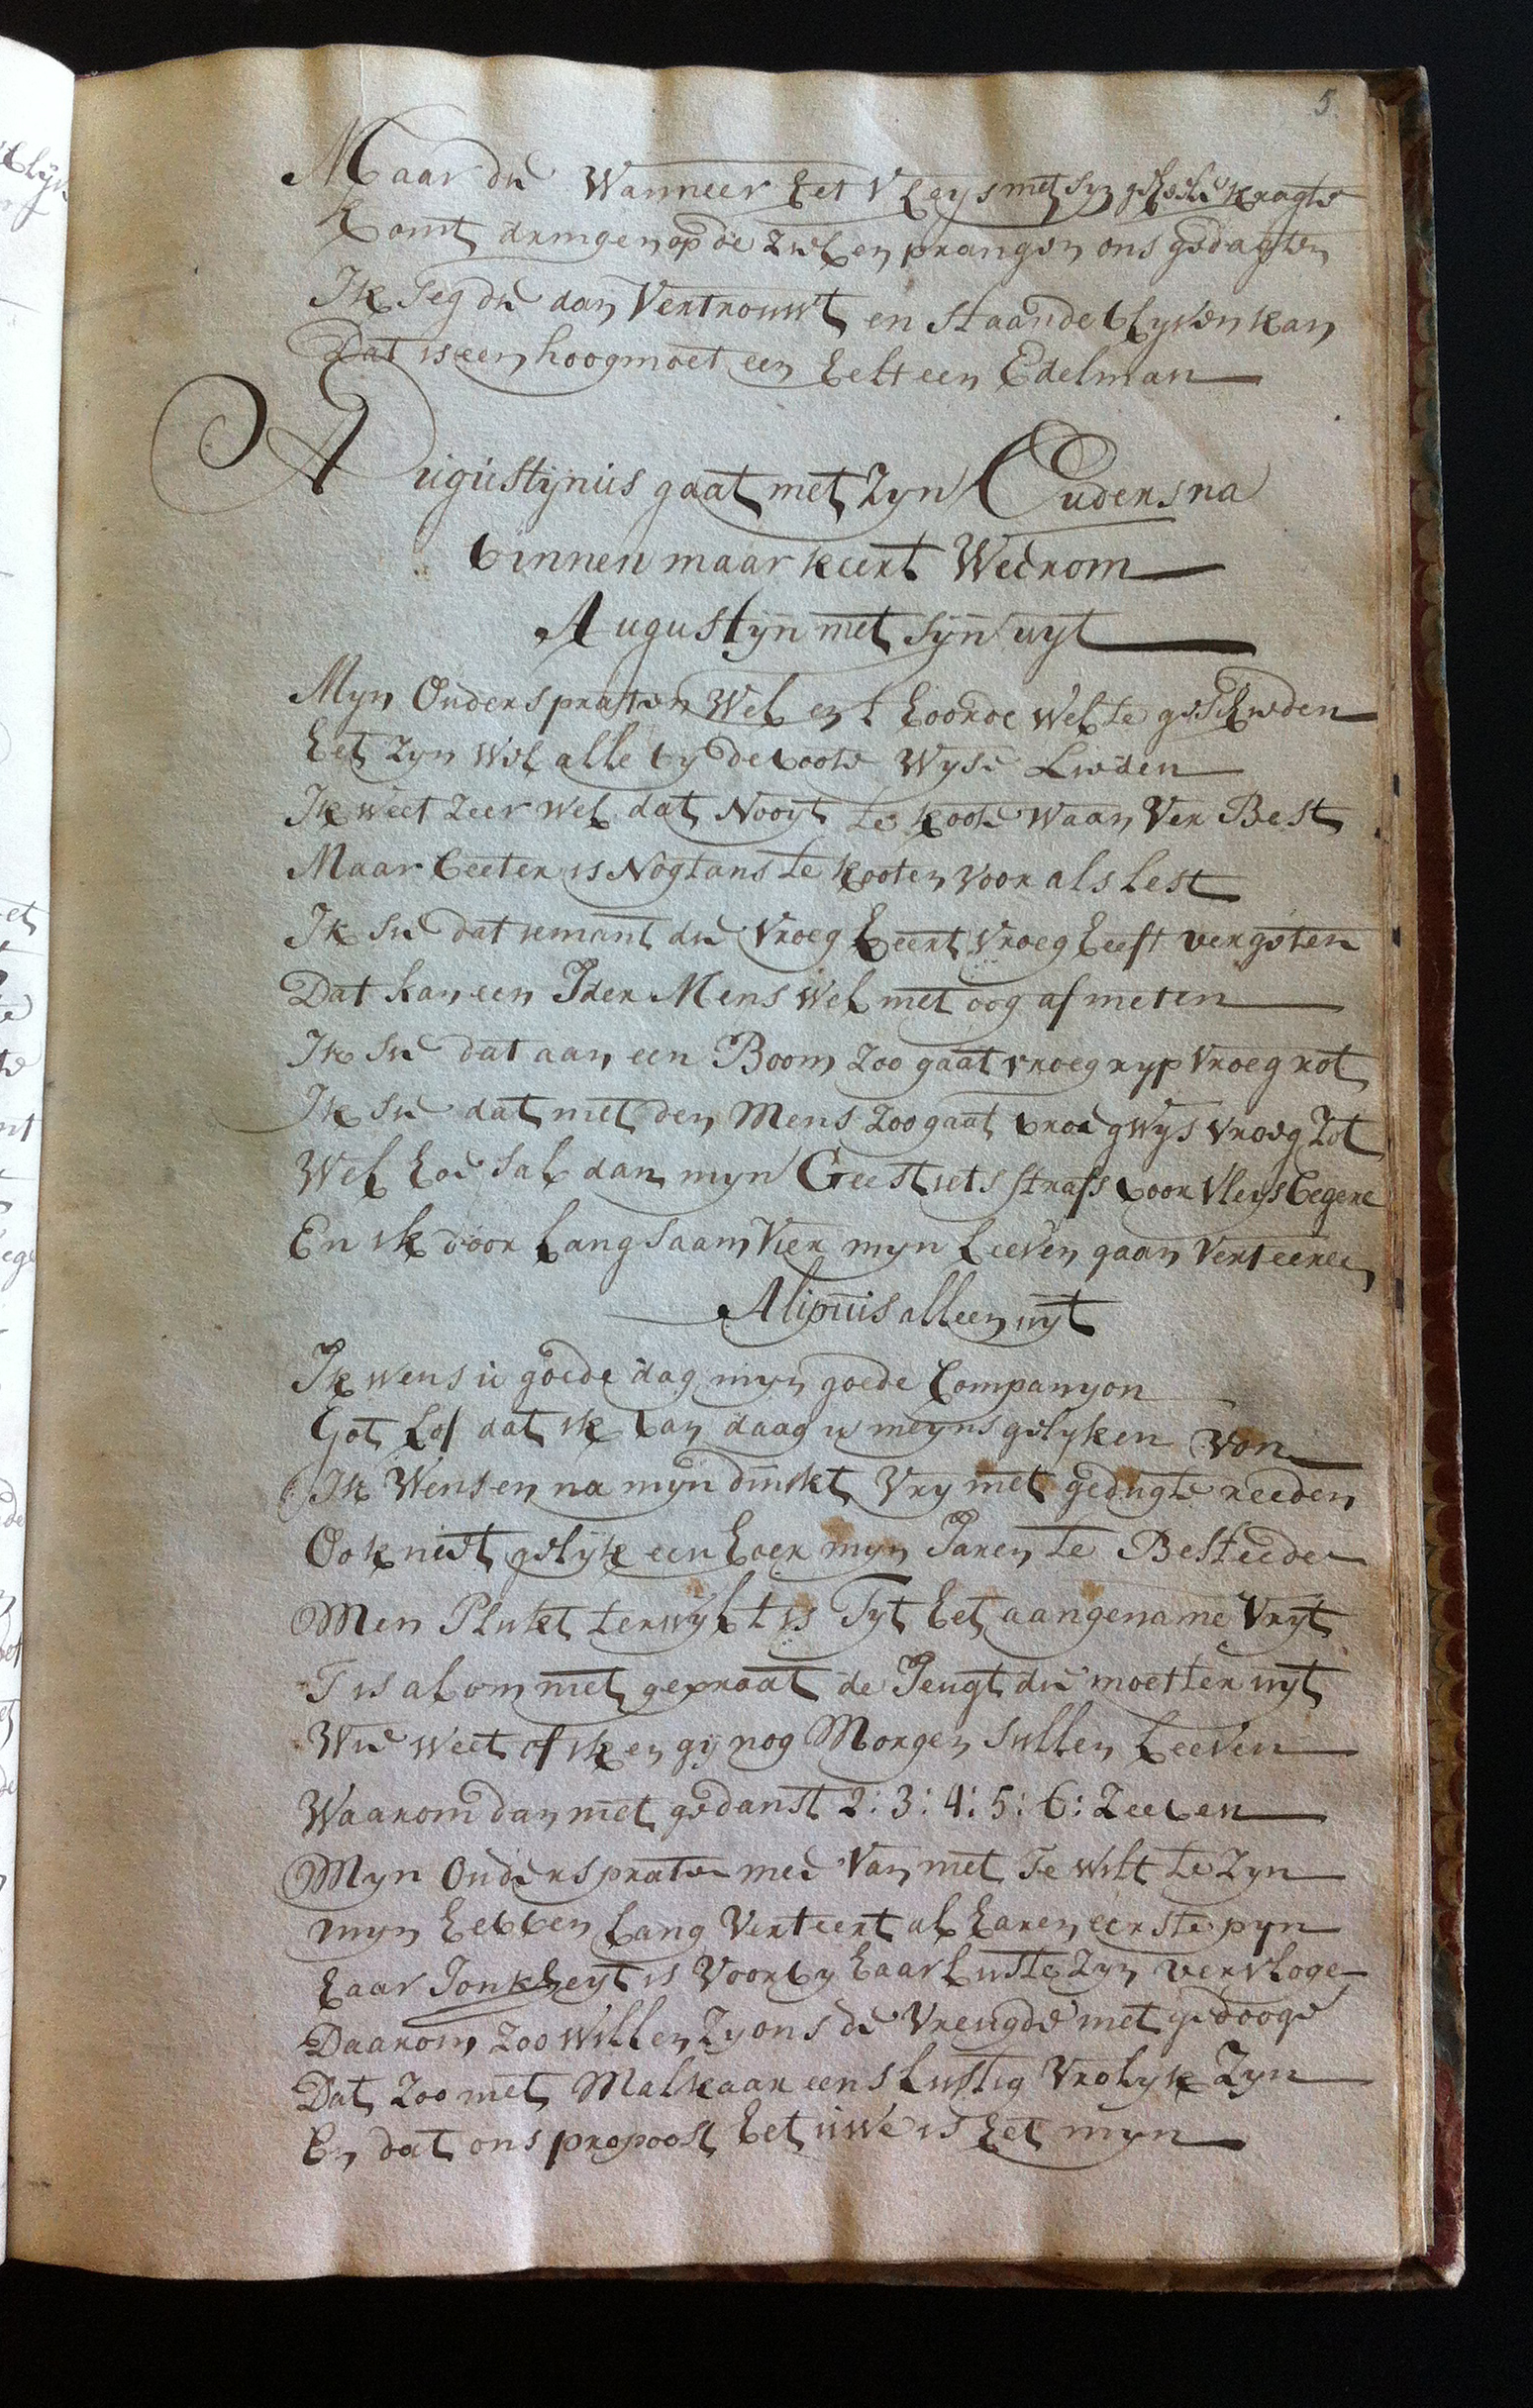 5.
Maar die Wanneer het Vleys met syn geheele kragte
komt dringen op de ziel en prangen ons gedagten
Ik seg die dan Vertrouwt en staande blyven kan
Dat is een hoogmoet een helt een Edelman
Augustijnus gaat met zyn Ouders na
binnen maar keert Weerom
Augustijn met sijn uyt
Myn Ouders praten Wel en t hoorde wel te geschieden
het zyn wel alle by de boote Wyse Lieden
Ik weet zeer wel dat Nooyt te hoote waan Ver Best
Maar beeter is Nogtans te hooten voor als lest
Ik sie dat iemant die Vroeg heert Vroeg heeft vergeten
Dat kan een Ider Mens wel met oog af meten
Ik sie dat aan een Boom zoo gaat vroeg ryp Vroeg rot
Ik sie dat met den Mens zoo gaat vroeg wys vroeg Zot
Wel hoe sal dan myn Geest iets straffs voor Vleys begere
En ik door Langsaam Vier myn Leeven gaan Verteeren
Alipuis alleen uyt
Ik wens u goede dag myn goede Companyon
Got Lof dat ik van daag u meyns gelyken Von
Ik Wensen na myn dunkt Vry met gedugte reeden
Ook niet gelyk een hoer myn Jaren te Besteede
Men Plukt terwyl t is Tyt het aangename Vryt
T is al om niet gepraat de Jeugt die moet ter uyt
Wie weet of ik en gy nog Morgen sullen Leeven
Waarom dan niet gedanst 2: 3: 4: 5: 6: Zeeven
Myn Ouders prate mee Van niet Te wilt te zyn
myn hebben Lang Verteert al haren eerste pyn
haar Jonkheyt is Voorby haar Luste zyn vervloge
Daarom zoo willen zy ons de Vreugde niet gedooge
Dat zoo met Malkaar eens Lustig Vrolyk Zyn
En dat ons propoost het uwe is het myn